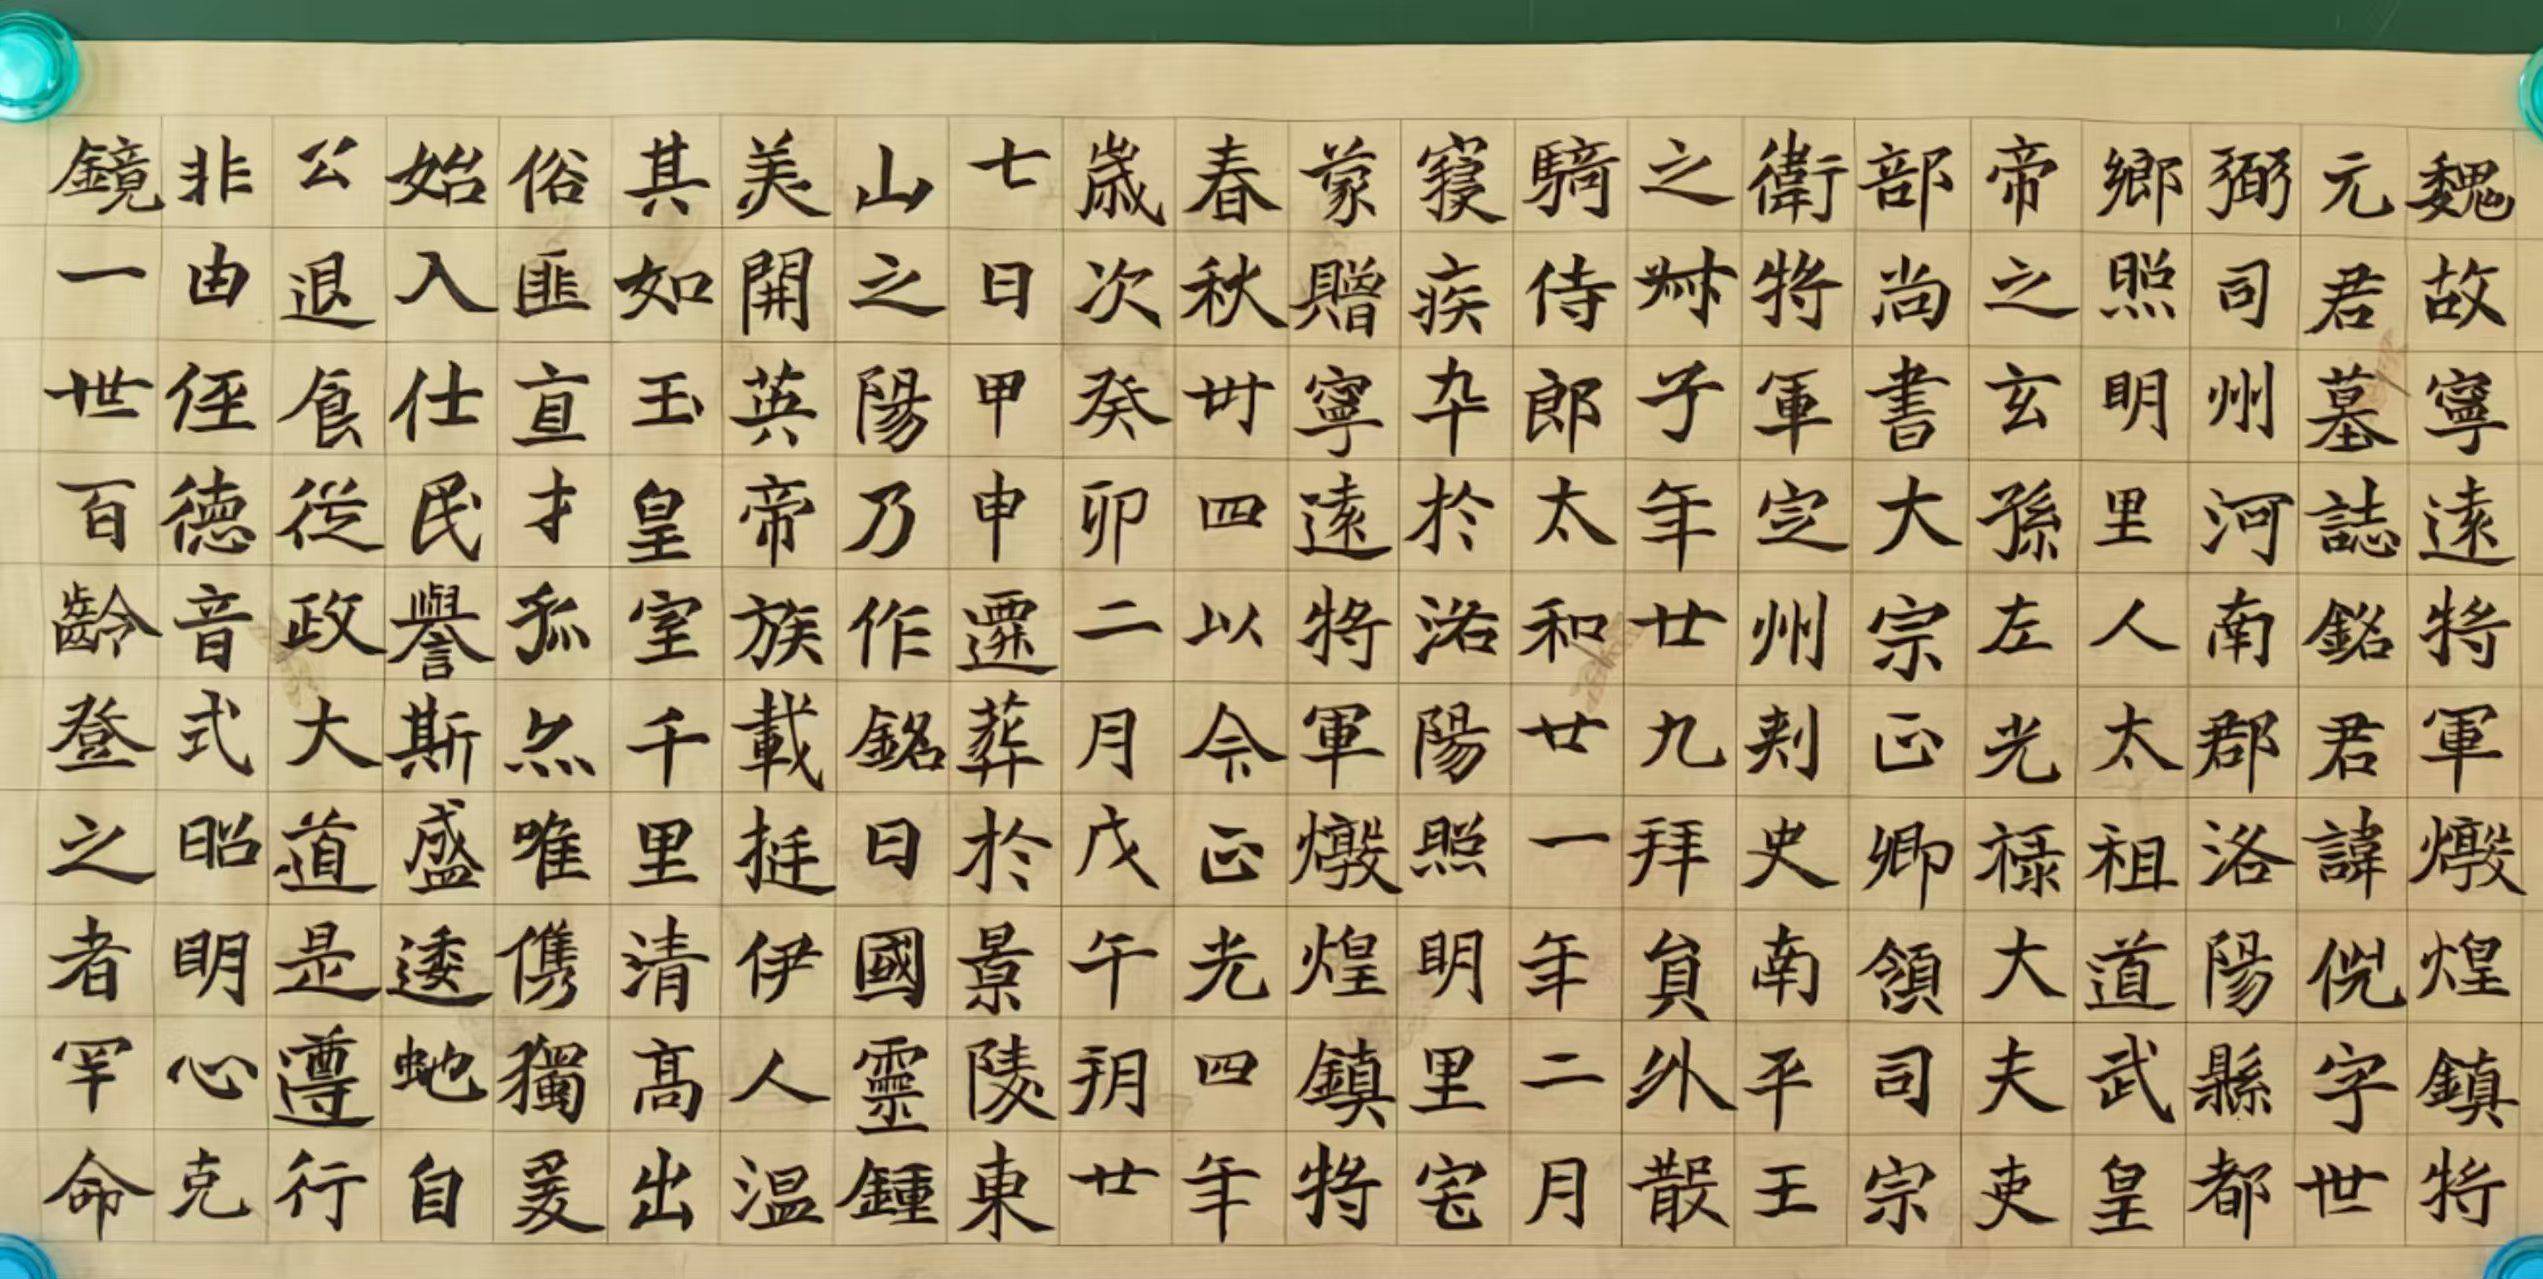 魏故寧遠將軍燉煌鎮將
元君墓誌銘君諱倪字世
弼司州河南郡洛陽縣都
鄉照明里人太祖道武皇
帝之玄孫左光祿大夫吏
部尚書大宗正卿領司宗
衛將軍定州刺史南平王
之第子年廿九拜員外散
騎侍郎太和廿一年二月
寢疾卒於洛陽照明里宅
蒙贈寧遠將軍燉煌鎮將
春秋卅四以今正光四年
歲次癸卯二月戊午朔廿
七日甲申遷葬於景陵東
山之陽乃作銘曰國靈鍾
美開英帝族載挺伊人溫
其如玉皇室千里清高出
俗匪直才孤亦唯儁獨爰
始入仕民譽斯盛逶虵自
公退食從政大道是遵行
非由徑德音式昭明心克
鏡一世百齡登之者罕命